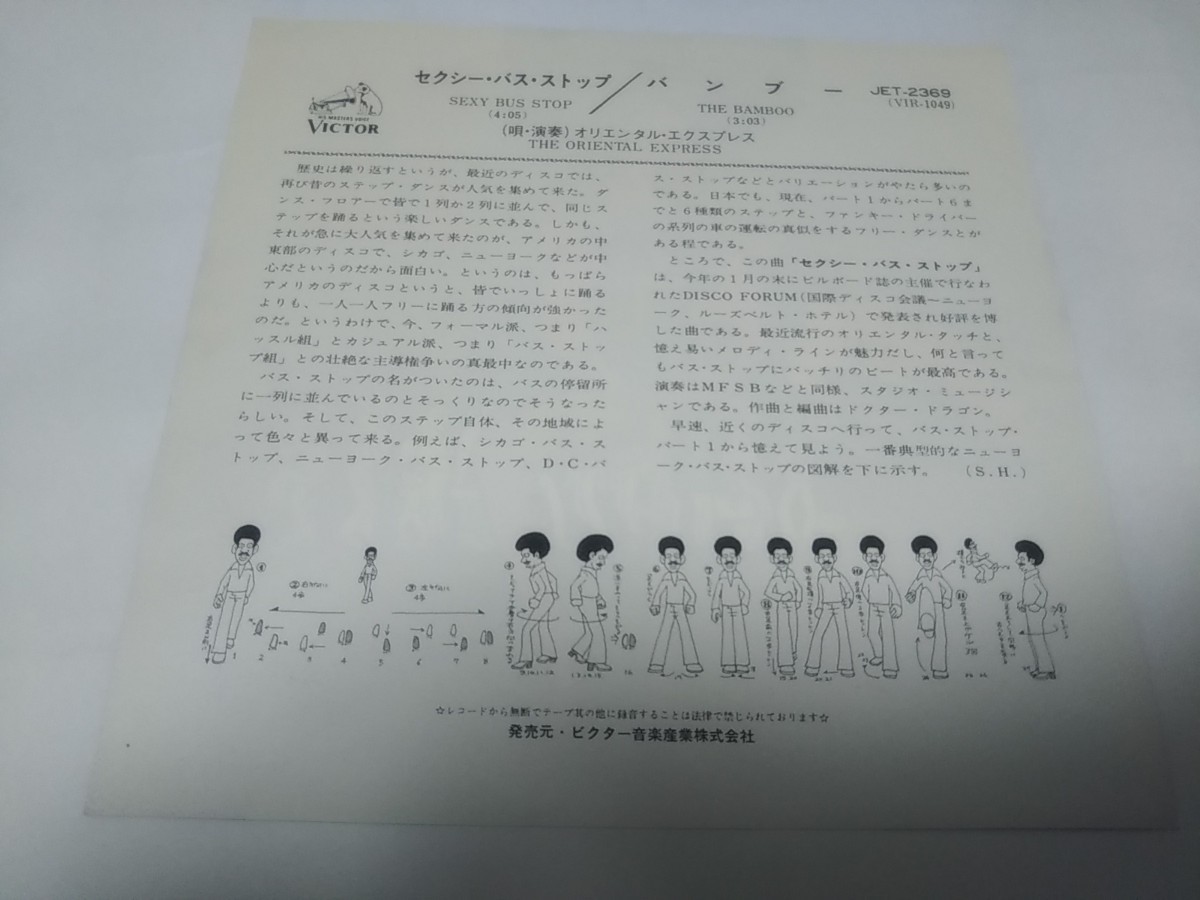 セクシー・バス・ストップ／バンブー JET-2369
SEXY BUS STOP THE BAMBOO (VIR-1049)
(4:05) (3:03)
HIS MASTERS VOICE
VICTOR
(唄・演奏) オリエンタル・エクスプレス
THE ORIENTAL EXPRESS
歴史は繰り返すというが、最近のディスコでは、
再び昔のステップ・ダンスが人気を集めて来た。ダ
ンス・フロアーで皆で1列か2列に並んで、同じス
テップを踊るという楽しいダンスである。しかも、
それが急に大人気を集めて来たのが、アメリカの中
東部のディスコで、シカゴ、ニューヨークなどが中
心だというのだから面白い。というのは、もっぱら
アメリカのディスコというと、皆でいっしょに踊る
よりも、一人一人フリーに踊る方の傾向が強かった
のだ。というわけで、今、フォーマル派、つまり「ハ
ッスル組」とカジュアル派、つまり「バス・ストッ
プ組」との壮絶な主導権争いの真最中なのである。
バス・ストップの名がついたのは、バスの停留所
に一列に並んでいるのとそっくりなのでそうなった
らしい。そして、このステップ自体、その地域によ
って色々と異って来る。例えば、シカゴ・バス・ス
トップ、ニューヨーク・バス・ストップ、D・C・バ
ス・ストップなどとバリエーションがやたら多いの
である。日本でも、現在、パート1からパート6ま
でと6種類のステップと、ファンキー・ドライバー
の系列の車の運転の真似をするフリー・ダンスとが
ある程である。
ところで、この曲「セクシー・バス・ストップ」
は、今年の1月の末にビルボード誌の主催で行なわ
れたDISCO FORUM(国際ディスコ会議〜ニューヨ
ーク、ルーズベルト・ホテル) で発表され好評を博
した曲である。最近流行のオリエンタル・タッチと、
憶え易いメロディ・ラインが魅力だし、何と言って
もバス・ストップにバッチリのビートが最高である。
演奏はMFSBなどと同様、スタジオ・ミュージシ
ャンである。作曲と編曲はドクター・ドラゴン。
早速、近くのディスコへ行って、バス・ストップ・
パート1から憶えて見よう。一番典型的なニューヨ
ーク・バス・ストップの図解を下に示す。 (S.H.)
1 2 3 4 5 6 7 8
☆レコードから無断でテープ其の他に録音することは法律で禁じられております☆
発売元・ビクター音楽産業株式会社